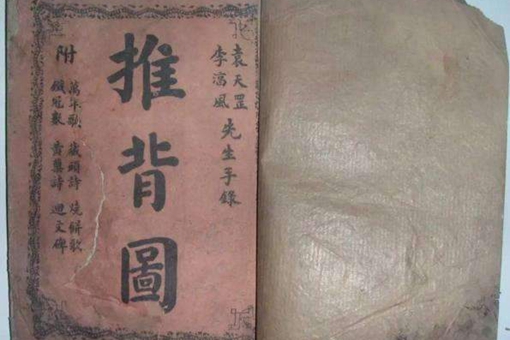 袁天罡
李淳風
先生手錄
推背圖
附
萬年歌 藏頭詩 燒餅歌
鐵冠數 黃蘗詩 迴文碑